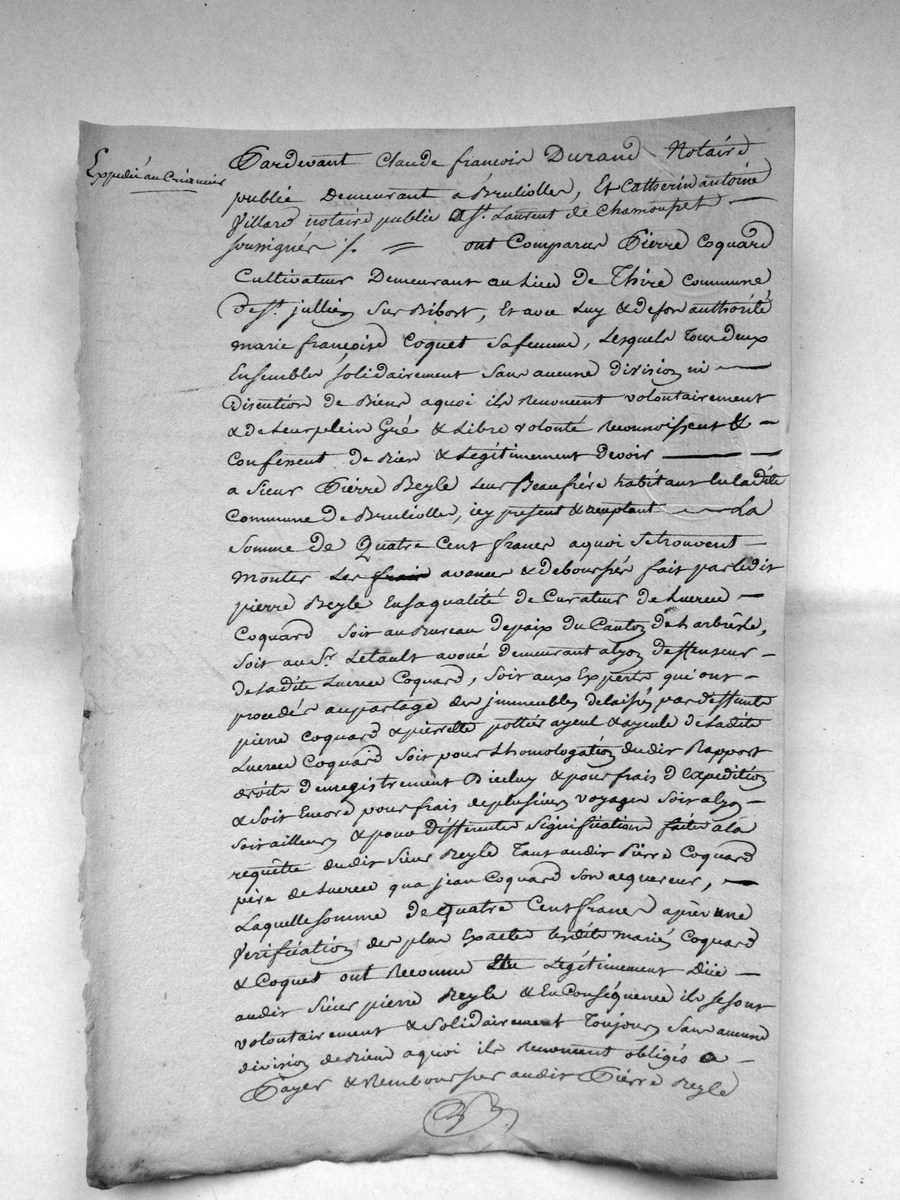 Expedié au Créancier
Pardevant Claude françois Durand Notaire
public Demeurant a Brulliolles, Et Catherin antoine
Villard notaire public a St. Laurent de Chamousset —
soussignés /. = ont Comparus Pierre Coquard
Cultivateur Demeurant au Lieu de Thiré Commune
de St. jullien Sur Bibost, Et avec Luy & de son authorité
marie françoise Coquet sa femme, Lesquels Tous deux
Ensembles solidairement sans aucune division ni —
Discution de Biens aquoi ils Renoncent volontairement
& de Leur plein Gré & Libre volonté Reconnoissent & —
Confessent de Bien & Légitimement devoir —
a Sieur Pierre Reyle Leur Beaufrère habitant En ladite
Commune de Brulliolles, icy présent & acceptant — La
Somme de Quatre Cent francs aquoi se trouvent —
monter Les frais avances & deboursés fait par ledit
pierre Reyle En sa qualité de Curateur de Lucrece —
Coquard Soit au Bureau de paix du Canton de Larbresle,
Soit au Sr. Letault avoué demeurant alyon deffenseur —
de Ladite Lucrece Coquard, Soit aux Experts qui ont —
procédés au partage des immeubles delaissés par deffunts
pierre Coquard & pierrette pottier ayeul & ayeule de Ladite
Lucrece Coquard Soit pour L'homologation dudit Rapport
droits d'enregistrement D'iceluy & pour frais d'Expedition
& Soit Encore pour frais de plusieurs voyages Soit alyon —
Soit ailleurs & pour differentes Significations faite a la
requête dudit Sieur Reyle Tant audit Pierre Coquard
père de Lucrece qua jean Coquard Son acquereur, —
Laquelle somme de Quatre Cent francs après une
Verification des plus Exacte lesdits mariés Coquard
& Coquet ont Reconnu Etre Légitimement Düe —
audit Sieur pierre Reyle & En Conséquence ils se sont
volontairement & Solidairement Toujours Sans aucune
division de Biens aquoi ils Renoncent obligés a —
Payer & Rembourser audit Pierre Reyle